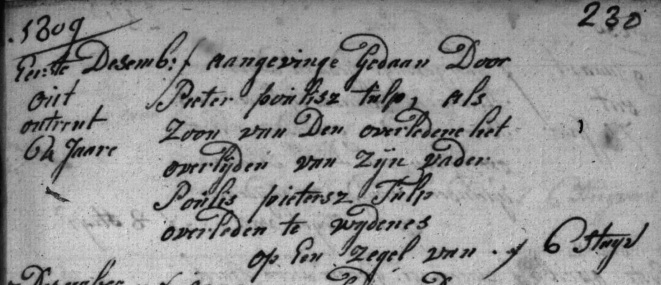 1809
230
Eerste Desemb: / aangevinge Gedaan Door
out Pieter poulisz tulp, als
ontrent zoon van Den overledene het
64 Jaare overlijden van zijn vader
Poulis pietersz Tulp
overleden te wijdenes
op Een zegel van . / 6 Stuyv